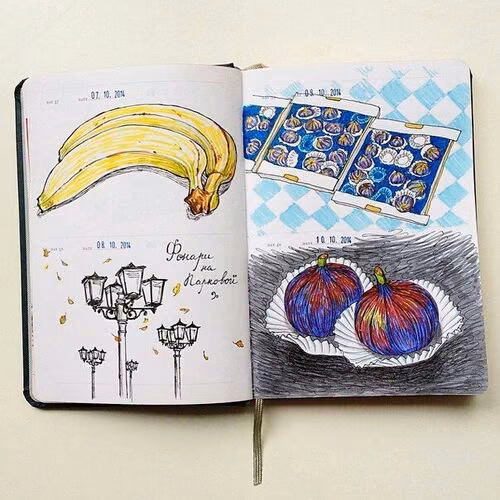 07. 10. 2014
08. 10. 2014
Фонари
на
Парковой
09. 10. 2014
10. 10. 2014